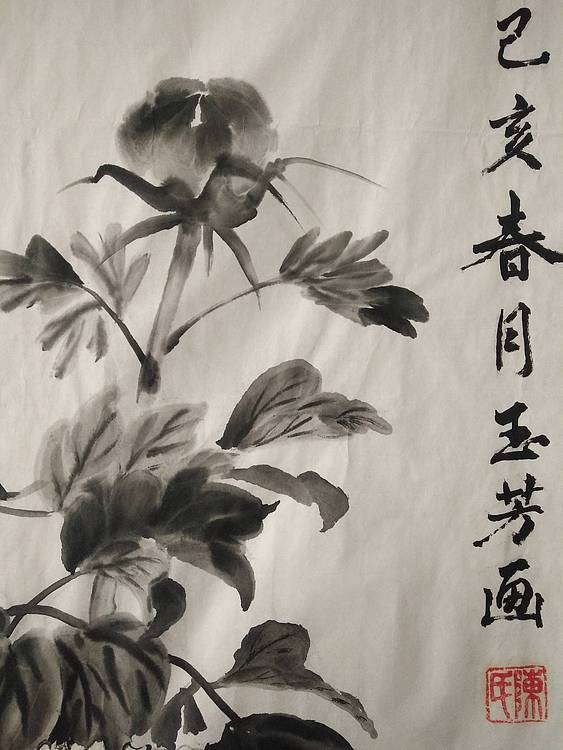 己亥春月玉芳画
陳氏